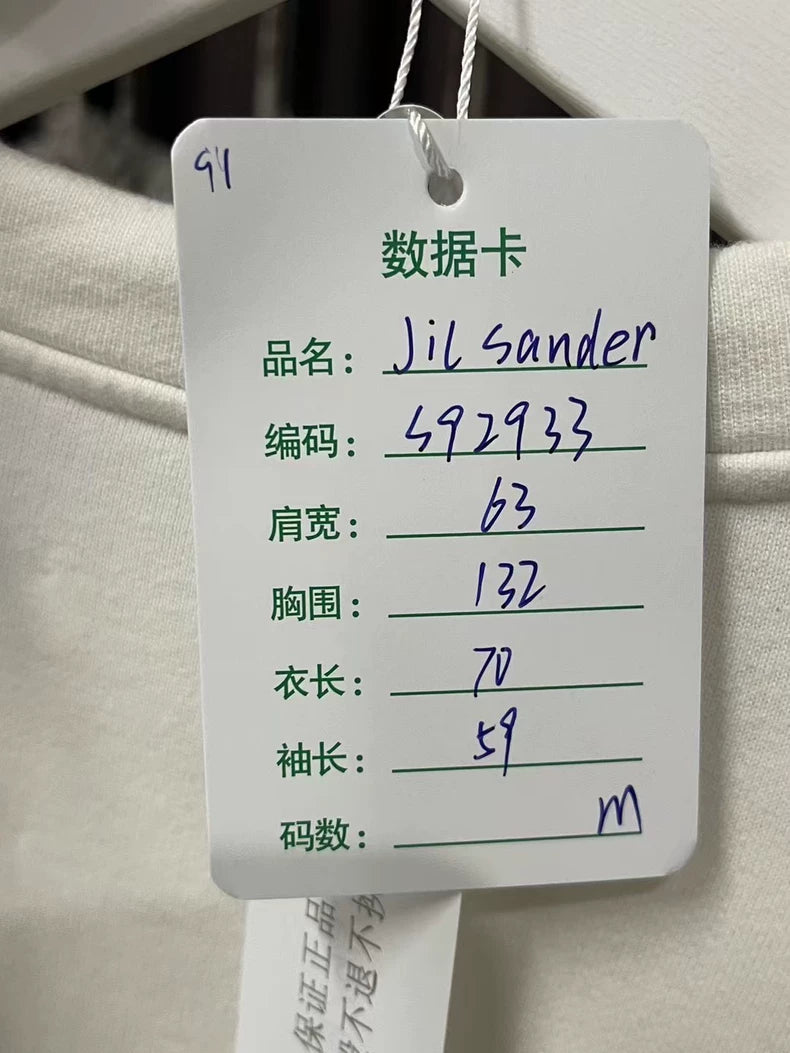 94
数据卡
品名: Jil sander
编码: 592933
肩宽: 63
胸围: 132
衣长: 70
袖长: 59
码数: m
保证正品
不退不换